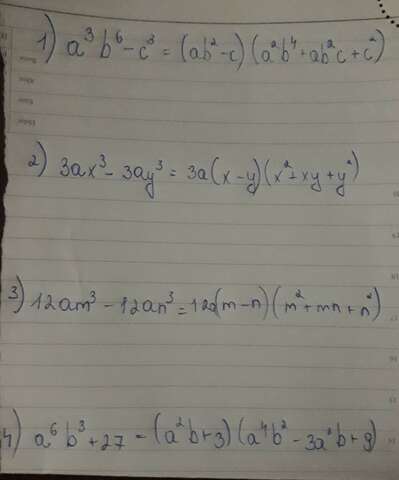 1) a³b⁶ - c³ = (ab² - c)(a²b⁴ + ab²c + c²)
2) 3ax³ - 3ay³ = 3a(x - y)(x² + xy + y²)
3) 12am³ - 12an³ = 12a(m - n)(m² + mn + n²)
4) a⁶b³ + 27 = (a²b + 3)(a⁴b² - 3a²b + 9)